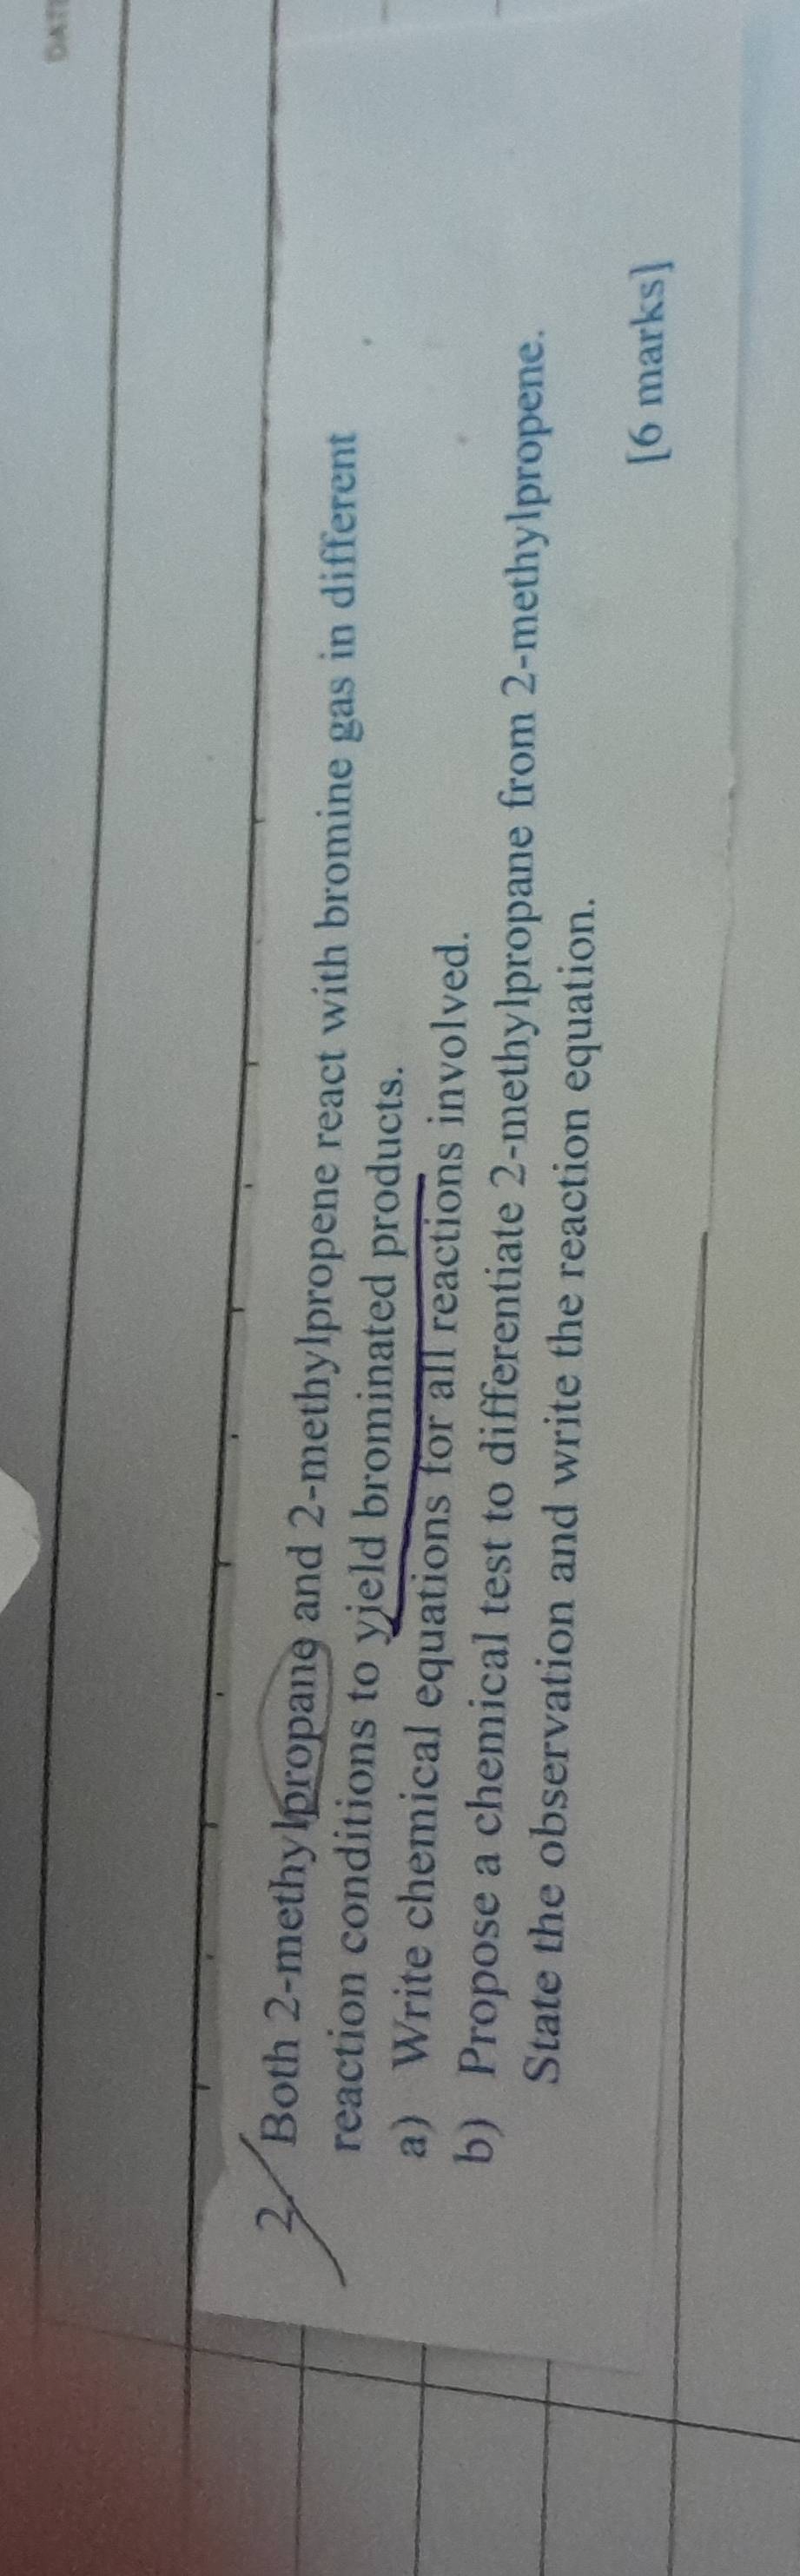 DATE
2 Both 2-methylpropane and 2-methylpropene react with bromine gas in different
reaction conditions to yield brominated products.
a) Write chemical equations for all reactions involved.
b) Propose a chemical test to differentiate 2-methylpropane from 2-methylpropene.
State the observation and write the reaction equation.
[6 marks]